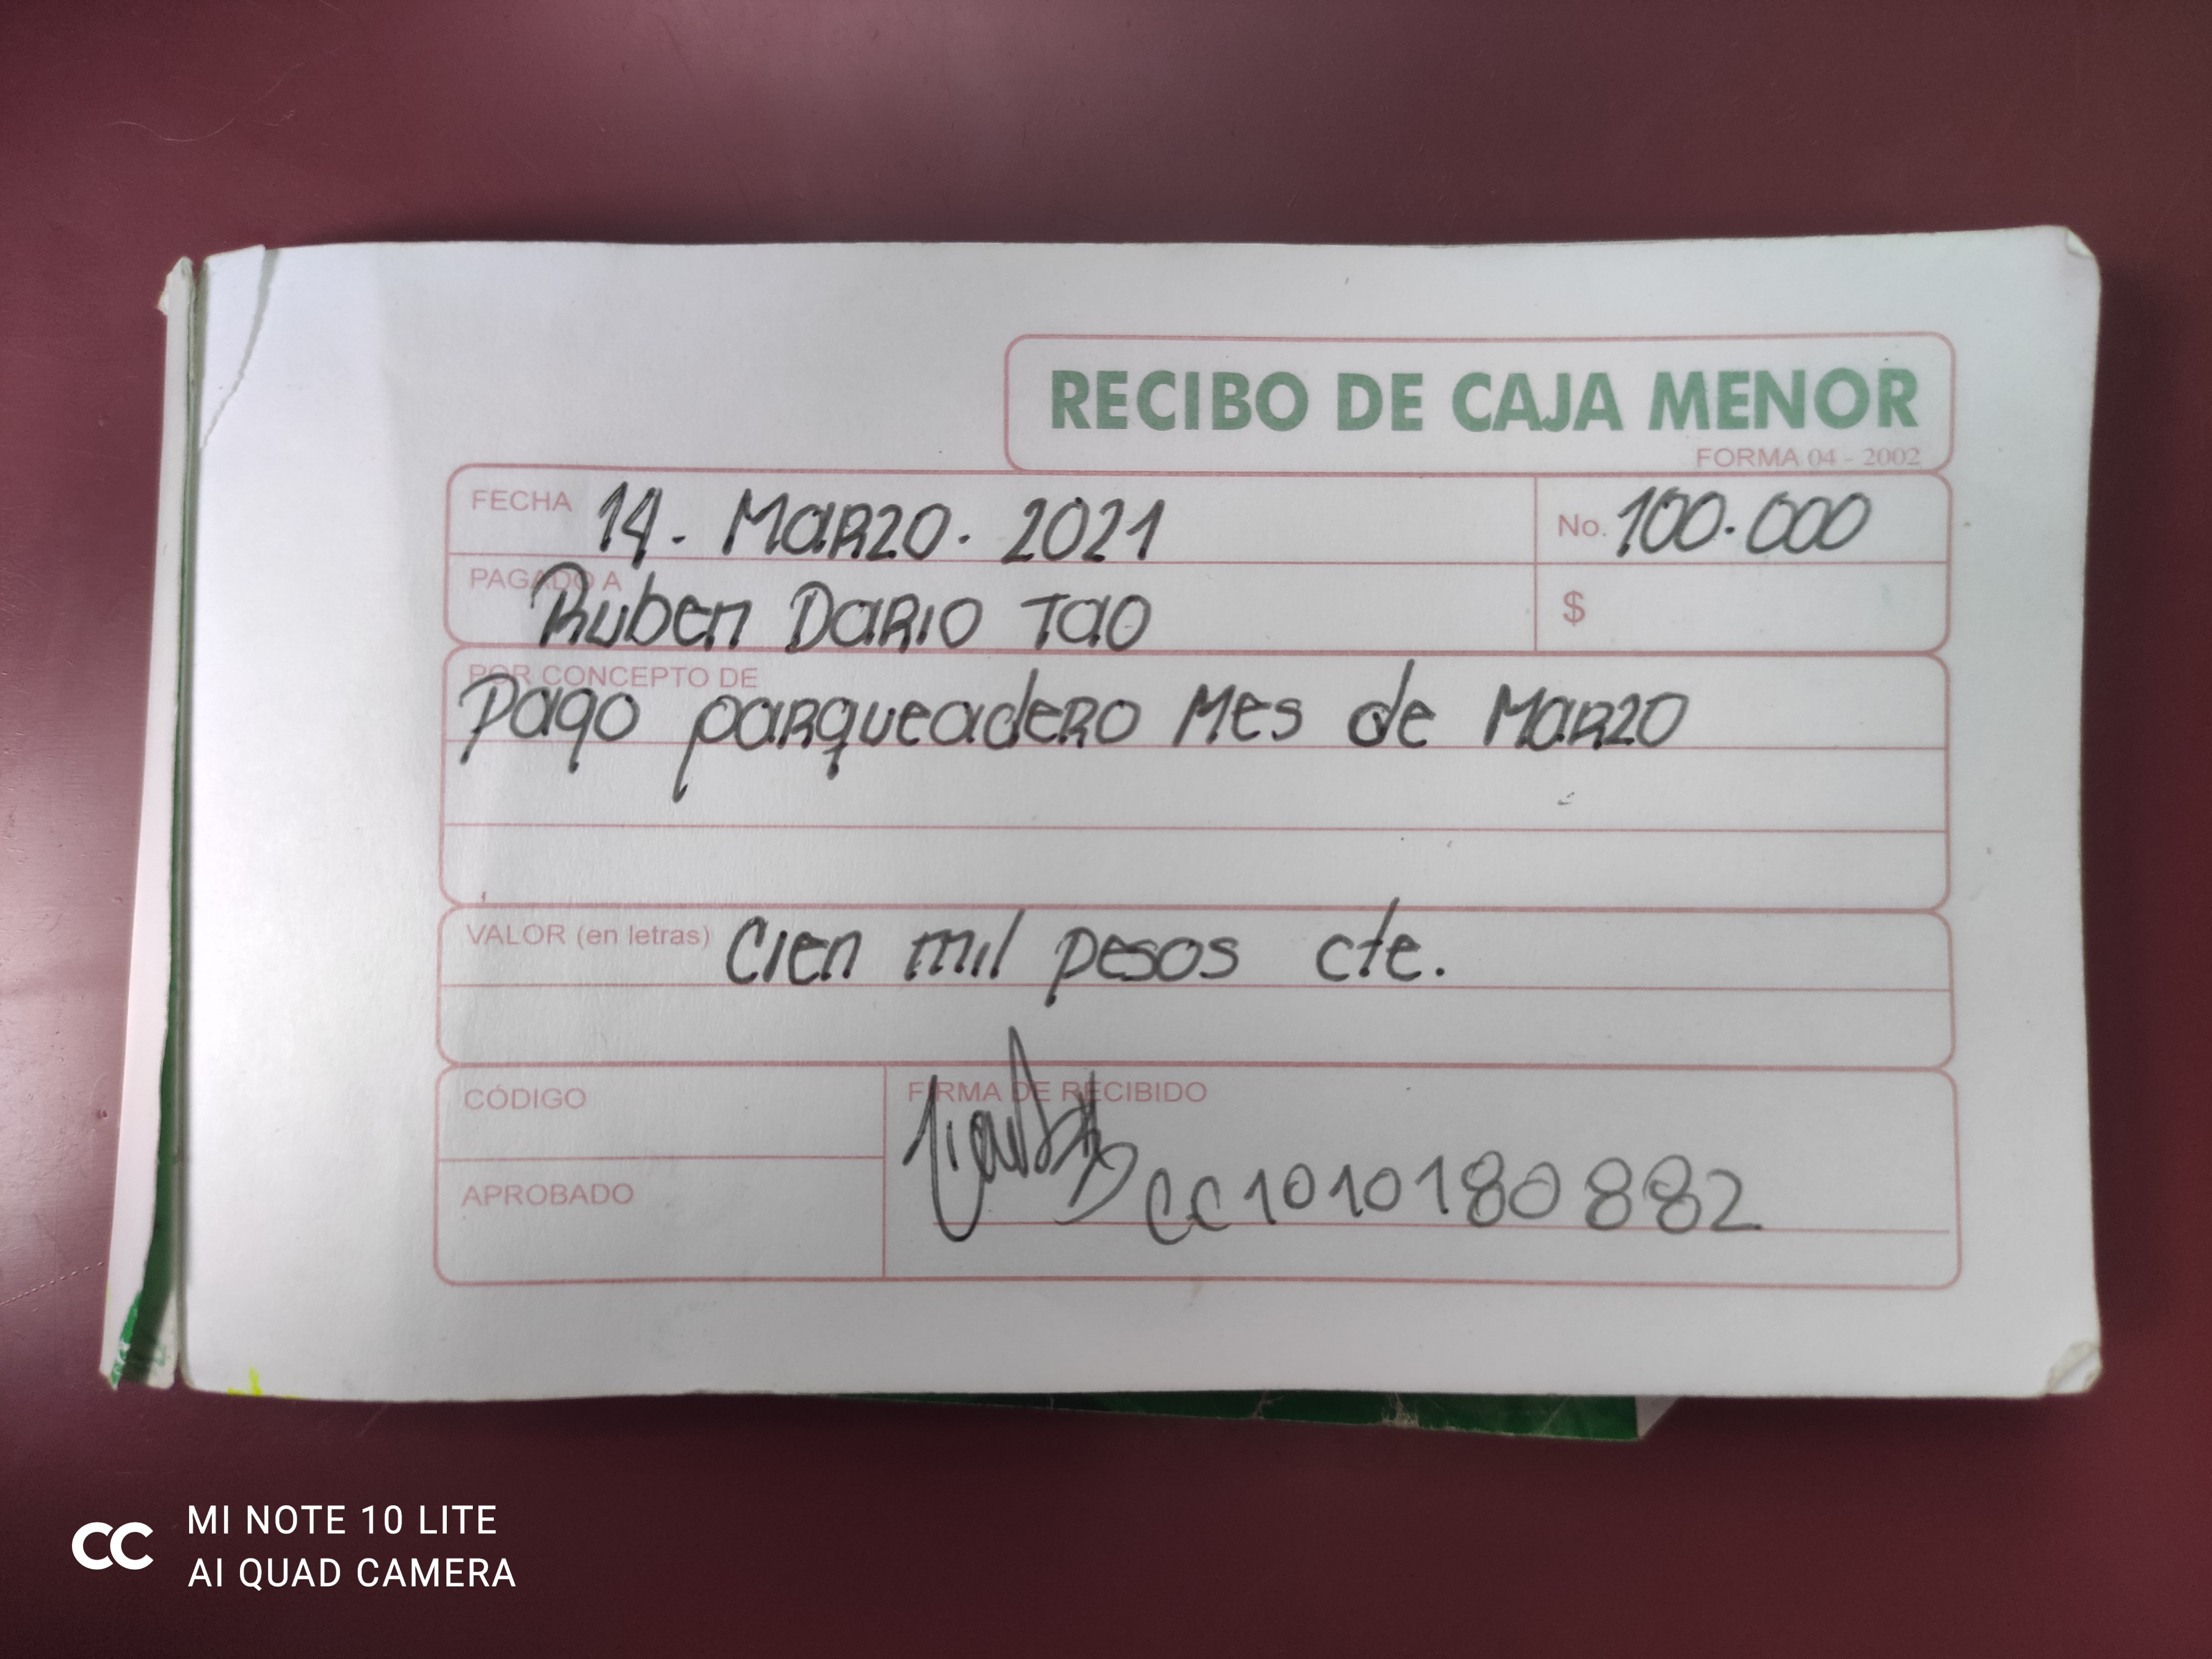 RECIBO DE CAJA MENOR
FORMA 04 - 2002
FECHA 14. Marzo. 2021
No. 100.000
PAGADO A
Ruben Dario Tao
$
POR CONCEPTO DE
Pago parqueadero Mes de Marzo
VALOR (en letras) Cien mil pesos cte.
CÓDIGO
FIRMA DE RECIBIDO
CC 1010180882
APROBADO
CC MI NOTE 10 LITE
AI QUAD CAMERA